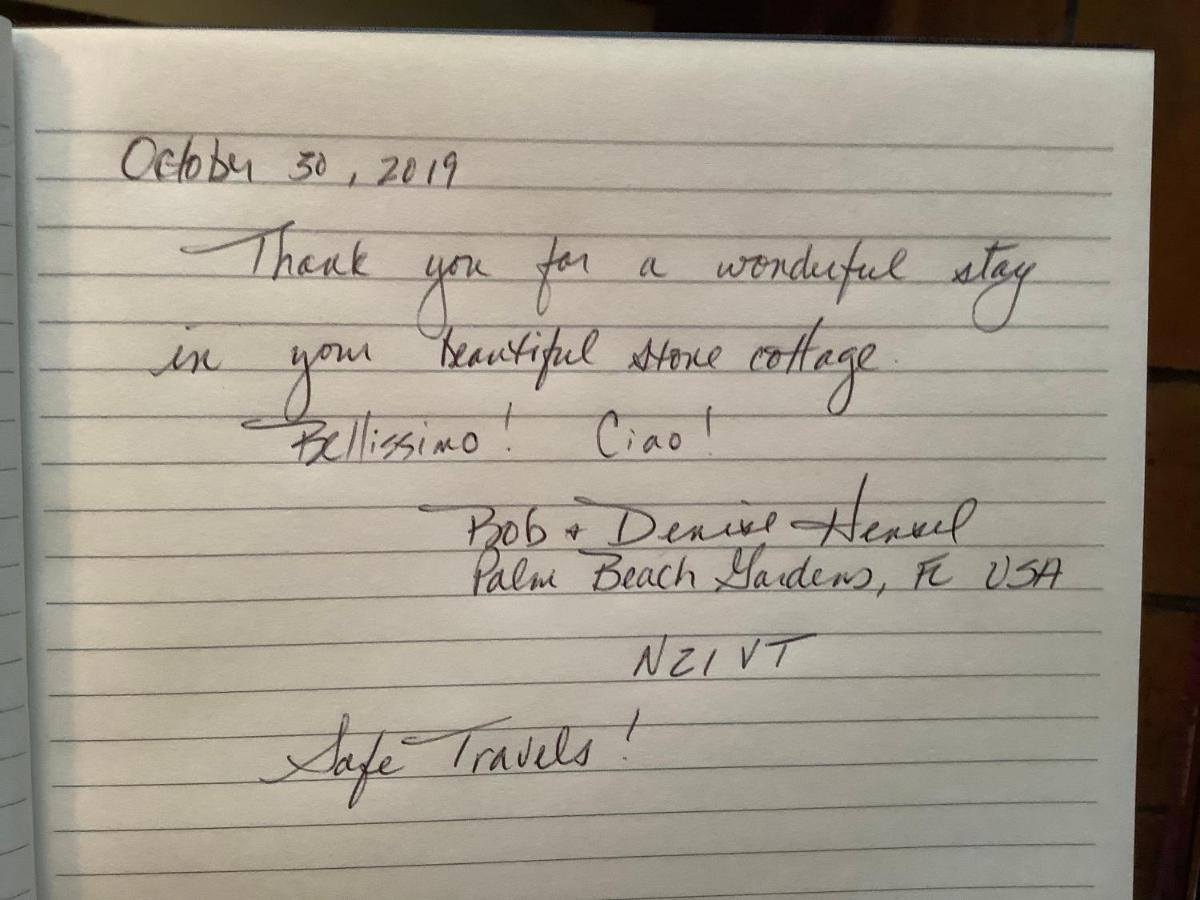 October 30, 2019
Thank you for a wonderful stay
in your beautiful stone cottage.
Bellissimo! Ciao!
Bob + Denise Hensel
Palm Beach Gardens, FL USA
NZ1VT
Safe Travels!